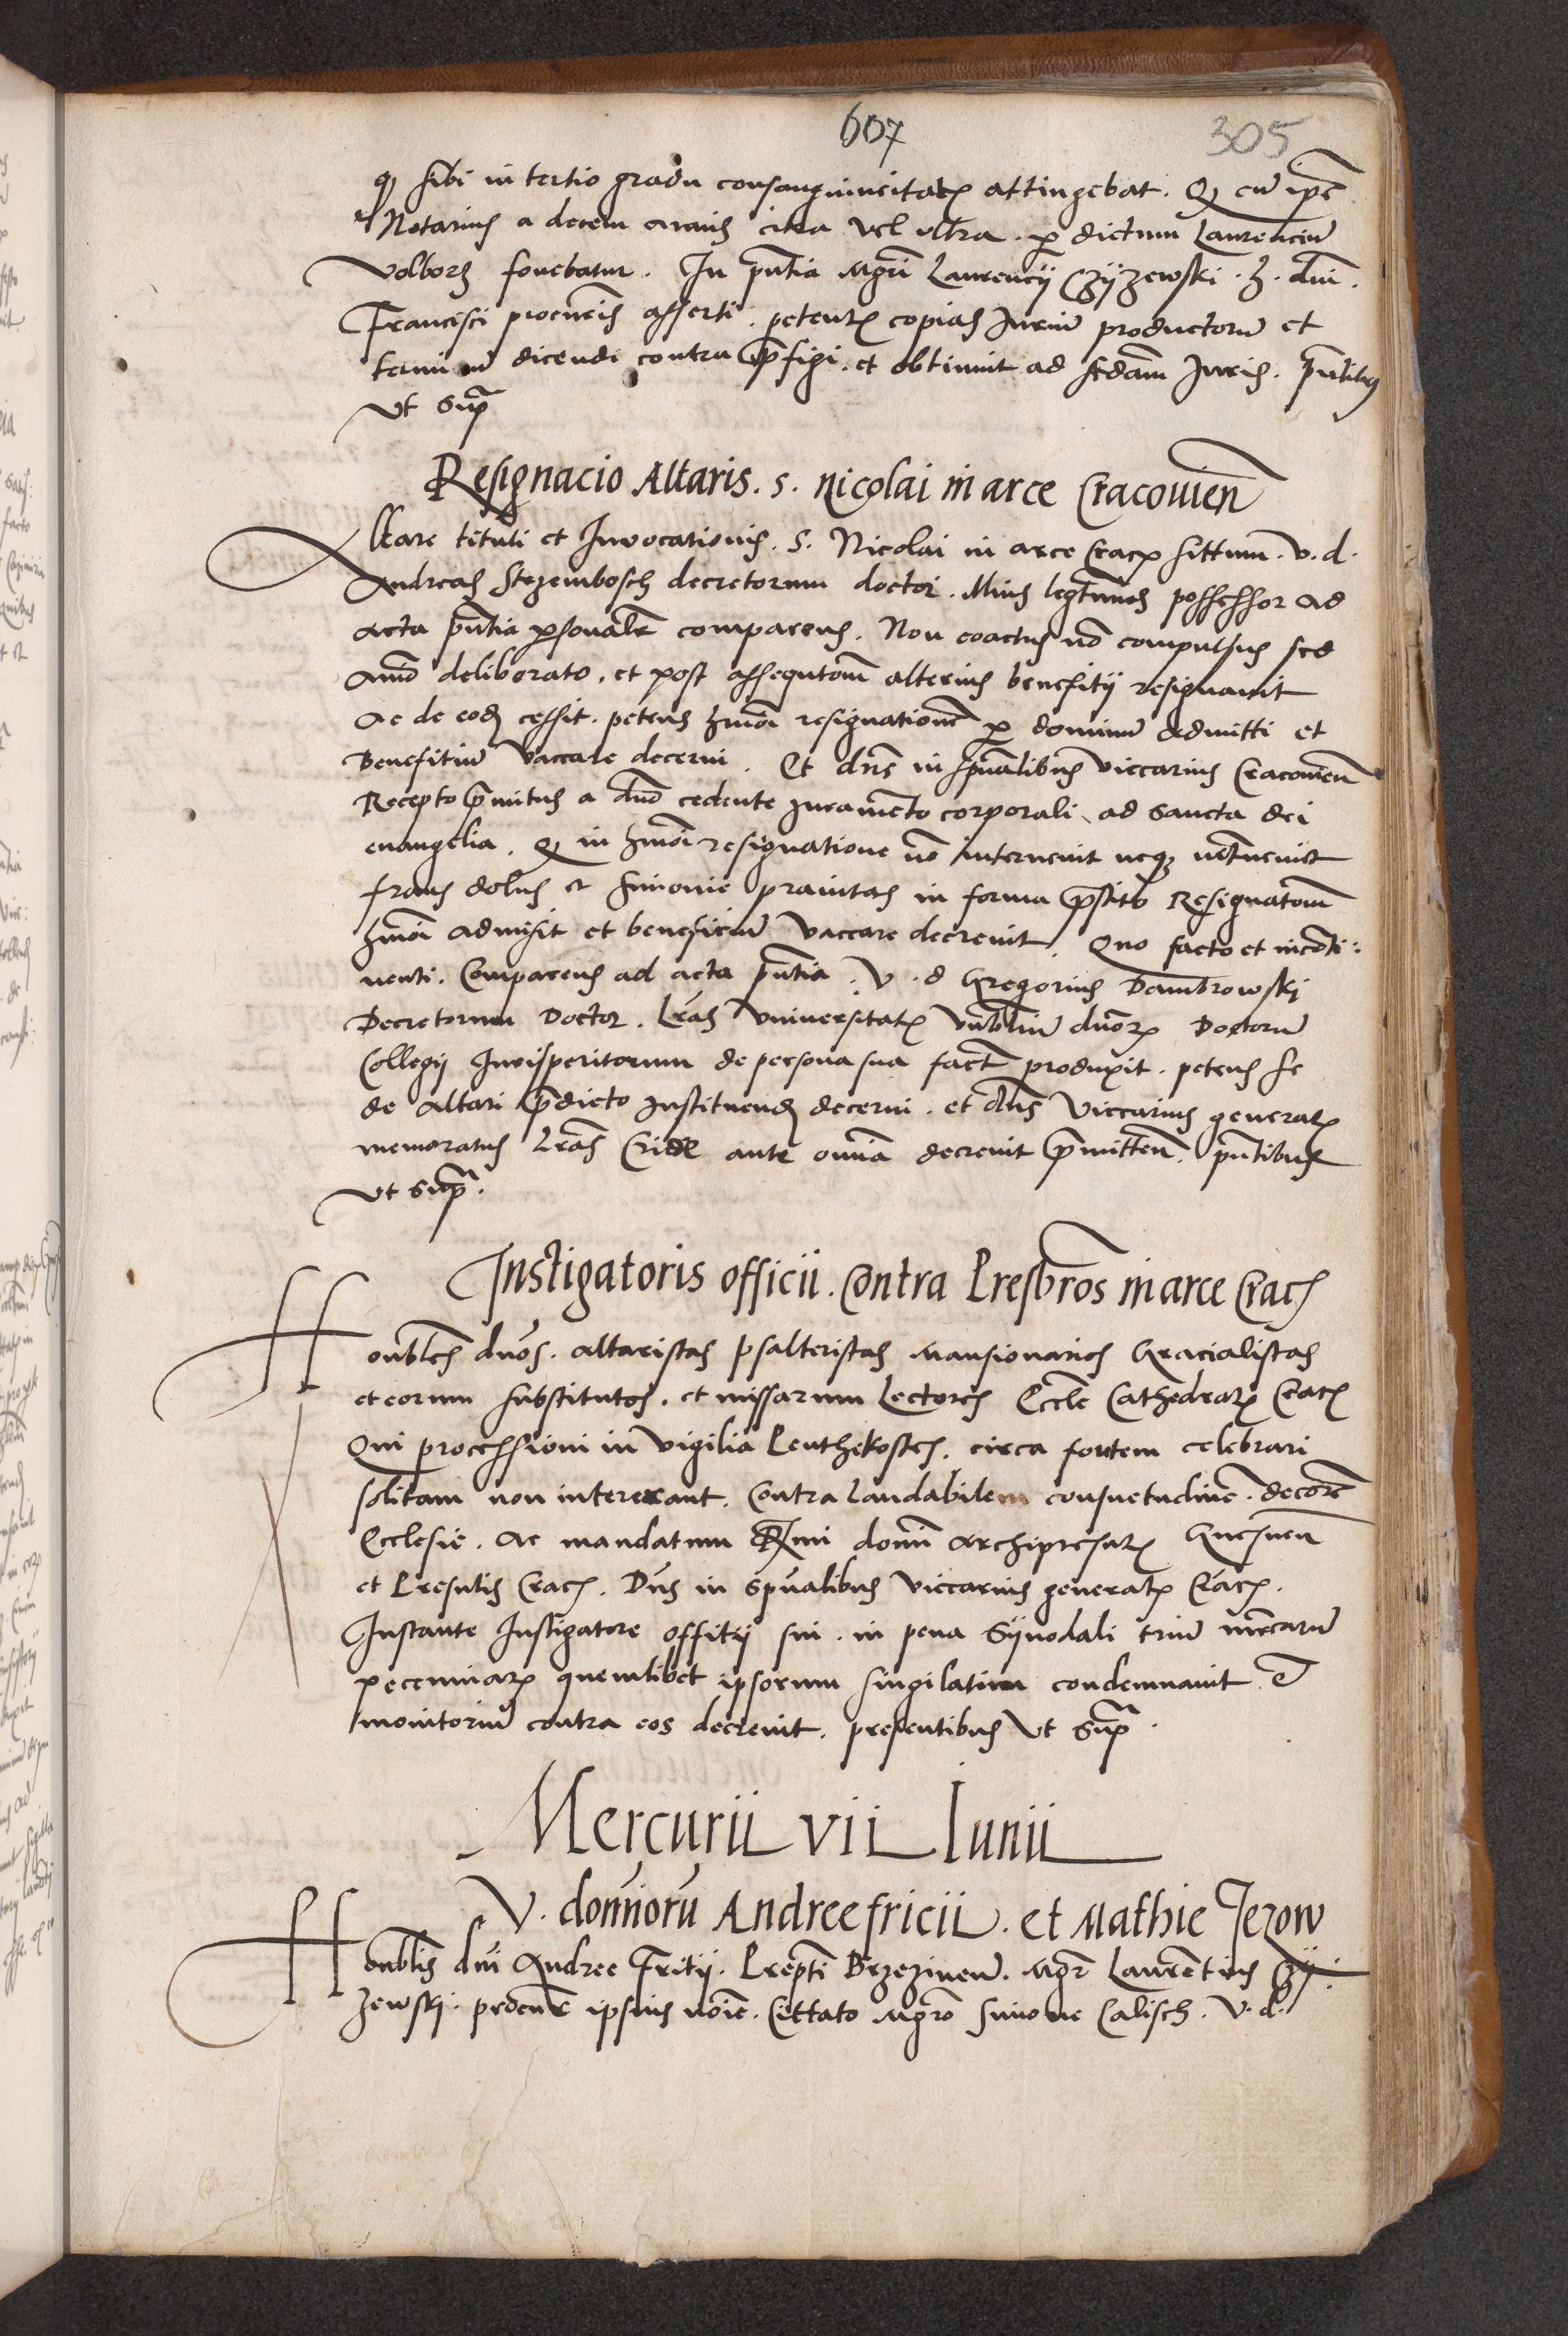 607
305
q sibi in tertio gradu consanguineitatꝭ attingebat. Q cu ipe
Notarius a decem annis citra vel ultra. ꝑ dictum Laurenciu
Volborz fovebatur. In pntia mgri Laurencii Czyzewski. z. dni.
Francisci procuris asserti. petentꝭ copias Juriu productoru et
terminu dicendi contra pfigi. et obtinuit ad scdam Juris. pntibus
vt supra
Resignacio Altaris. s. nicolai in arce Cracouien
Altare tituli et Invocationis. S. Nicolai in arce Cracꝭ sittum. v. d.
Andreas Strzembosch decretorum doctor. illius legtimus possessor ad
acta pntia ꝑsonalr comparens. Non coactus no compulsus sed
animo deliberato. et post assequtom alterius benefitii resignavit
ac de eodꝭ cessit. petens hmoi resignatione ꝑ dominu admitti et
Benefitiu vaccare decerni. Et dns in spualibus viccarius Cracouien
Recepto pmitus a dno cedente Juramento corporali ad sancta dei
euangelia. Q in hmoi resignatione no intervenit neqꝫ intvenict
fraus dolus et simonie pravitas in forma pstito Resignatom
hmoi admisit et beneficiu vaccare decrevit. Quo facto et inconti:
nenti. Comparens ad acta pntia. v. d Gregorius Dambrowskj
Decretorum Doctor. Lras Universitatꝭ vnbliu dnorꝭ Doctoru
Collegii Jurisperitorum de persona sua fact produxit. petens se
de altari pdicto Instituendꝭ decerni. et dns viccarius generalꝭ
memoratus Lras Cride ante omia decrevit pmitten. pntibus
vt supra.
Instigatoris officii. Contra Presbros in arce Cracꝭ
Honbles dnos. altaristas psalteristas mansionarios Gracialistas
et eorum substitutos. et missarum Lectores Eccle Cathedralꝭ Cracꝭ
Qui processioni in vigilia Penthekostes. circa fontem celebrari
solitam non intererant. Contra laudabilem consuetudine. decore
Ecclesie. ac mandatum Rmi domi archipresulꝭ Gnesnen
et Presulis Cracꝭ. Dns in spualibus viccarius generalꝭ Cracꝭ.
Instante Instigatore offitii sui. in pena Synodali triu mrcaru
peccuniarꝭ quemlibet ipsorum singilatim condemnavit et
monitoriu contra eos decrevit. presentibus vt supra.
Mercurii vii Iunii
V. domioru Andree fricii. et Mathie Jezow
Honblis dni Andree Fritii. Prepti Brzezinen. mgr Laurentius Czy:
zewskj. procur ipsius noie. Cittato mgro Simone Calisch. v. d.